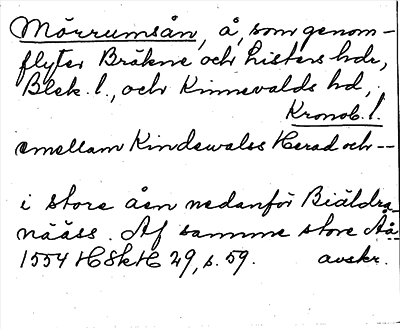 Mörrumsån, å, som genom-
flyter Bräkne och Listers hdr,
Blek. l., och Kinnevalds hd,
Kronob. l.
emellam Kindewalss Herad och --
i store åen nedanför Biäldra
nääss. Af samme store Aå
1554 HSkH 29, s. 59. avskr.